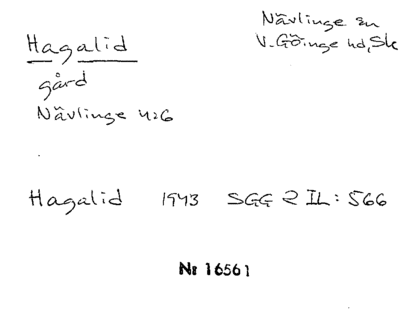 Hagalid
Nävlinge sn
V. Göinge hd, Sk
gård
Nävlinge 4:6
Hagalid 1943 SGG 2 II: 566
Nr 16561